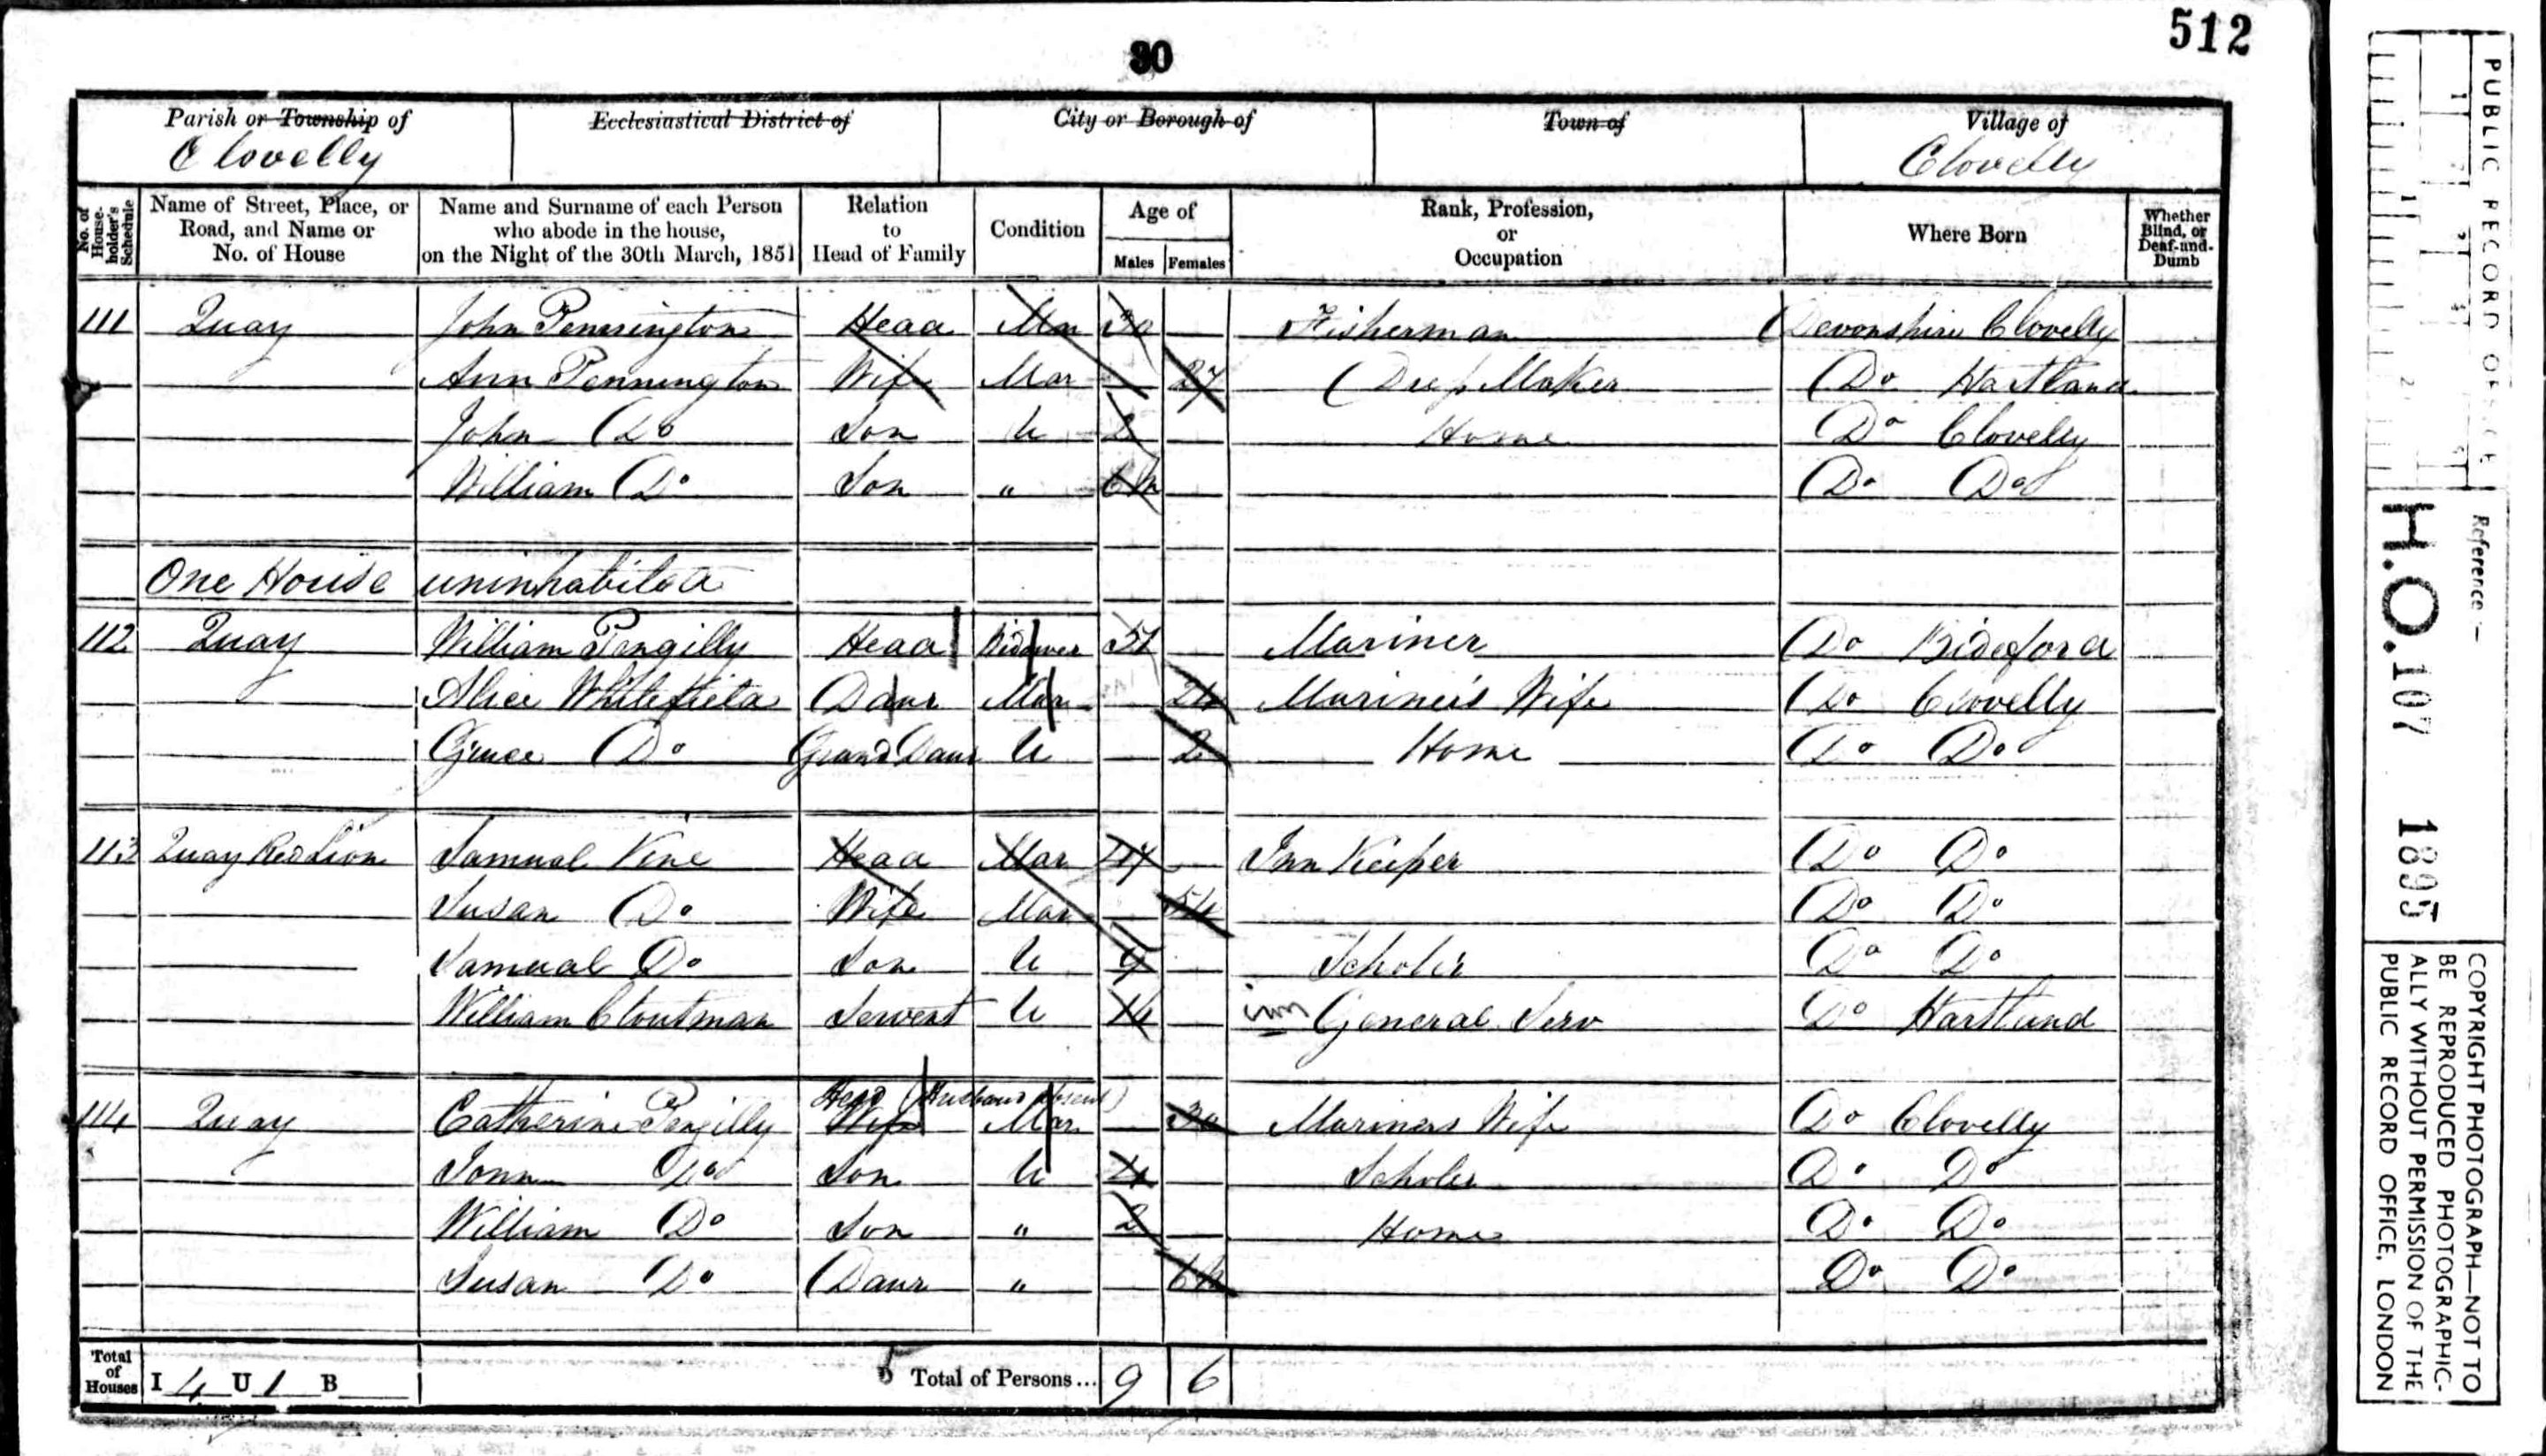 512
30
Parish or Township of
Clovelly
Ecclesiastical District of
City or Borough of
Town of
Village of
Clovelly
No. of House-holder's Schedule
Name of Street, Place, or Road, and Name or No. of House
Name and Surname of each Person who abode in the house, on the Night of the 30th March, 1851
Relation to Head of Family
Condition
Age of
Males Females
Rank, Profession, or Occupation
Where Born
Whether Blind, or Deaf-and-Dumb
111 Quay John Pennington Head Mar 30 Fisherman Devonshire Clovelly
Ann Pennington Wife Mar 27 Maker Do Hartland
John Do Son U 2 Home Do Clovelly
William Do Son " 6m Do Do
One House uninhabited
112 Quay William Pengilly Head Widower 51 Mariner Do Bideford
Alice Whitefield Daur Mar 24 Mariner's Wife Do Clovelly
Grace Do Grand Daur U 2 Home Do Do
113 Quay Red Lion Samual Vine Head Mar 47 Inn Keeper Do Do
Susan Do Wife Mar 54 Do Do
Samual Do Son U 9 Scholer Do Do
William Cloutman Servent U 14 General Serv Do Hartland
114 Quay Catherine Pengilly Head (Husband absent) Wife Mar 30 Mariners Wife Do Clovelly
John Do Son U 4 Scholer Do Do
William Do Son " 2 Home Do Do
Susan Do Daur " 6m Do Do
Total of Houses I 4 U 1 B
Total of Persons... 9 6
PUBLIC RECORD OFFICE
Reference :-
H.O. 107 1895
COPYRIGHT PHOTOGRAPH—NOT TO
BE REPRODUCED PHOTOGRAPHIC-
ALLY WITHOUT PERMISSION OF THE
PUBLIC RECORD OFFICE, LONDON